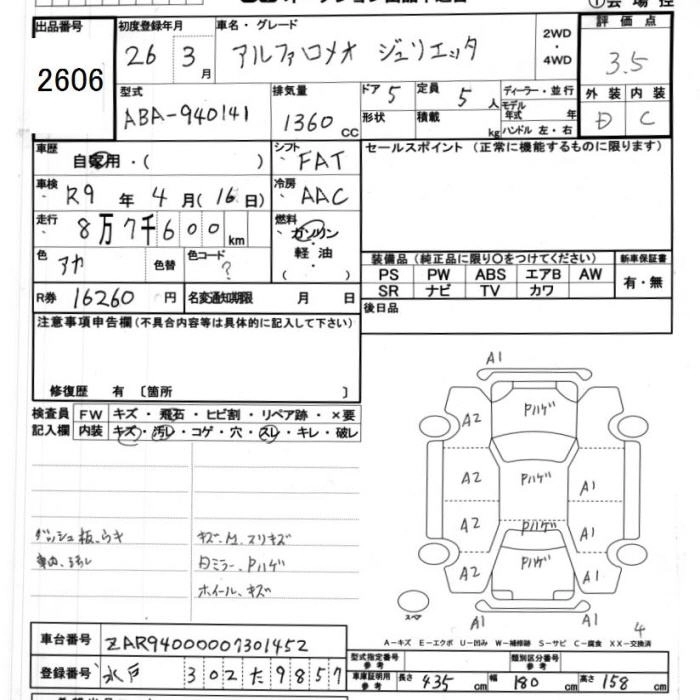 出品番号
2606
初度登録年月
26 3月
車名・グレード
アルファロメオ ジュリエッタ
2WD
・
4WD
評価点
3.5
型式
ABA-940141
排気量
1360 cc
ドア 5
定員 5 人
形状
積載 kg
ディーラー・並行
モデル
年式 年
ハンドル 左・右
外装 内装
D C
車歴
自家用・( )
シフト
FAT
セールスポイント (正常に機能するものに限ります)
車検
R9 年 4 月(16日)
冷房
AAC
走行
8万7千600 km
燃料
ガソリン
・
軽油
( )
色
アカ
色替
色コード
?
装備品(純正品に限り〇をつけてください)
新車保証書
PS PW ABS エアB AW
SR ナビ TV カワ
有・無
R券 16260 円
名変通知期限 月 日
後日品
注意事項申告欄(不具合内容等は具体的に記入して下さい)
修復歴 有 〔箇所 〕
検査員
記入欄
FW キズ・飛石・ヒビ割・リペア跡・×要
内装 キズ・汚レ・コゲ・穴・スレ・キレ・破レ
ダッシュ板、ウキ
車内、ヨゴレ
キズ、M、スリキズ
日ミラー、Pハゲ
ホイール、キズ
A1
A2 Pハゲ
A2 Pハゲ A1
A2 Pハゲ A1
A2 Pハゲ A1
A1
スペア
4
A-キズ E-エクボ U-凹み W-補修跡 S-サビ C-腐食 XX-交換済
車台番号 ZAR94000007301452
登録番号 水戸 302 た 9857
型式指定番号
参考
類別区分番号
参考
車庫証明用
参考
長さ 435 cm 幅 180 cm 高さ 158 cm